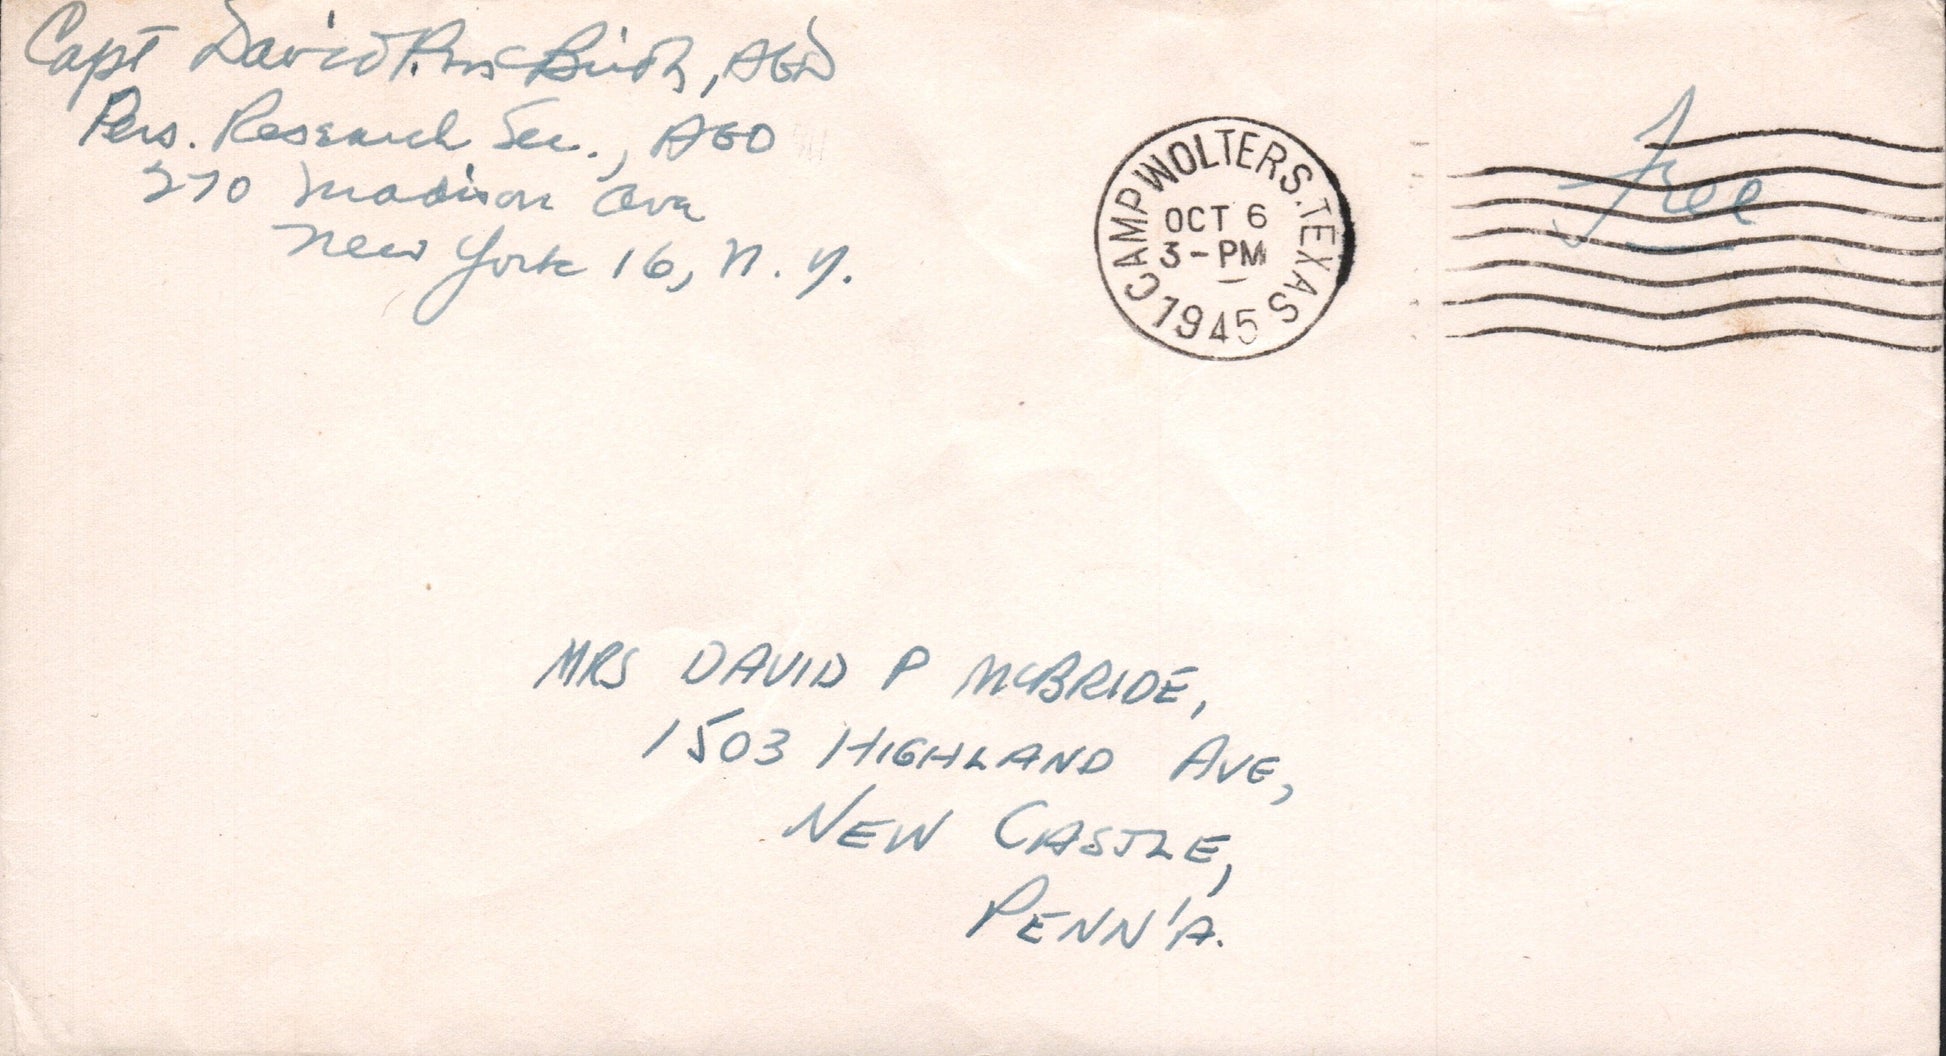 Capt David P. McBride, AGD
Pers. Research Sec., AGO
270 Madison Ave
New York 16, N. Y.
CAMP WOLTERS. TEXAS
OCT 6
3-PM
1945
Free
MRS DAVID P MCBRIDE,
1503 HIGHLAND AVE,
NEW CASTLE,
PENN'A.